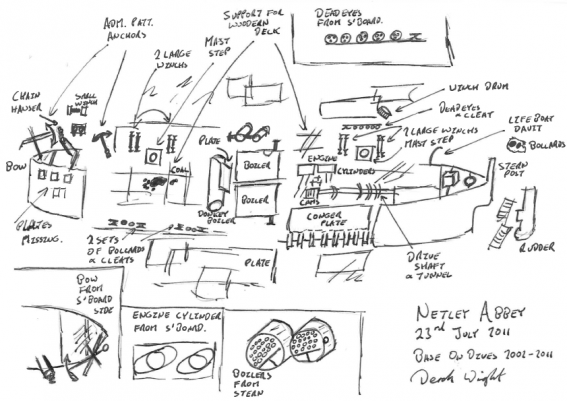 ADM. PATT.
ANCHORS
2 LARGE
WINCHS
MAST
STEP
SUPPORT FOR
WOODERN
DECK
DEADEYES
FROM S'BOARD.
CHAIN
HAWSER
SMALL
WINCH
BOW
PLATES
MISSING.
COAL
PLATE
DONKEY
BOILER
BOILER
BOILER
2 SETS
OF BOLLARDS
& CLEATS
PLATE
ENGINE
CYLINDERS
CAMS
CONGER
PLATE
WINCH DRUM
DEADEYES
& CLEAT
2 LARGE WINCHS
MAST STEP
LIFE BOAT
DAVIT
BOLLARDS
STERN
POST
RUDDER
DRIVE
SHAFT
& TUNNEL
BOW
FROM
S'BOARD
SIDE
ENGINE CYLINDER
FROM S'BOARD.
BOILERS
FROM
STERN
NETLEY ABBEY
23rd JULY 2011
BASE ON DIVES 2002-2011
Derek Wright